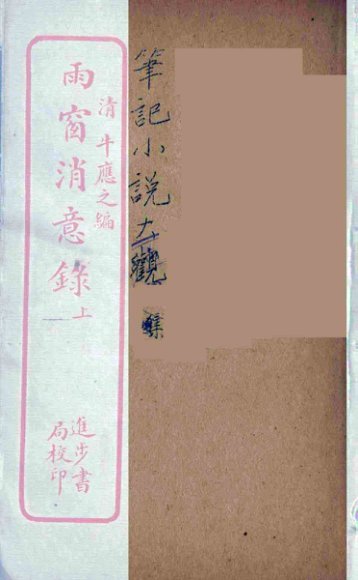 筆記小說大觀
清 牛應之編
雨窗消意錄 上
進步書
局校印